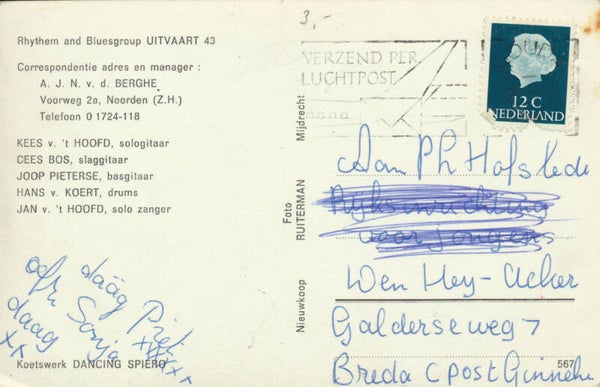 3,-
Rhythem and Bluesgroup UITVAART 43
Correspondentie adres en manager :
A. J. N. v. d. BERGHE
Voorweg 2a, Noorden (Z.H.)
Telefoon 0 1724-118
KEES v. 't HOOFD, sologitaar
CEES BOS, slaggitaar
JOOP PIETERSE, basgitaar
HANS v. KOERT, drums
JAN v. 't HOOFD, solo zanger
daag Piet
xxxxx
afz Sonja
daag
xx
Koetswerk DANCING SPIERO
Foto RUITERMAN Mijdrecht
Nieuwkoop
VERZEND PER
LUCHTPOST
12 C
NEDERLAND
Aan Ph Hofstede
Rijksinrichting
voor jongens
Den Hey-Acker
Galderseweg 7
Breda (Post Ginneken
567